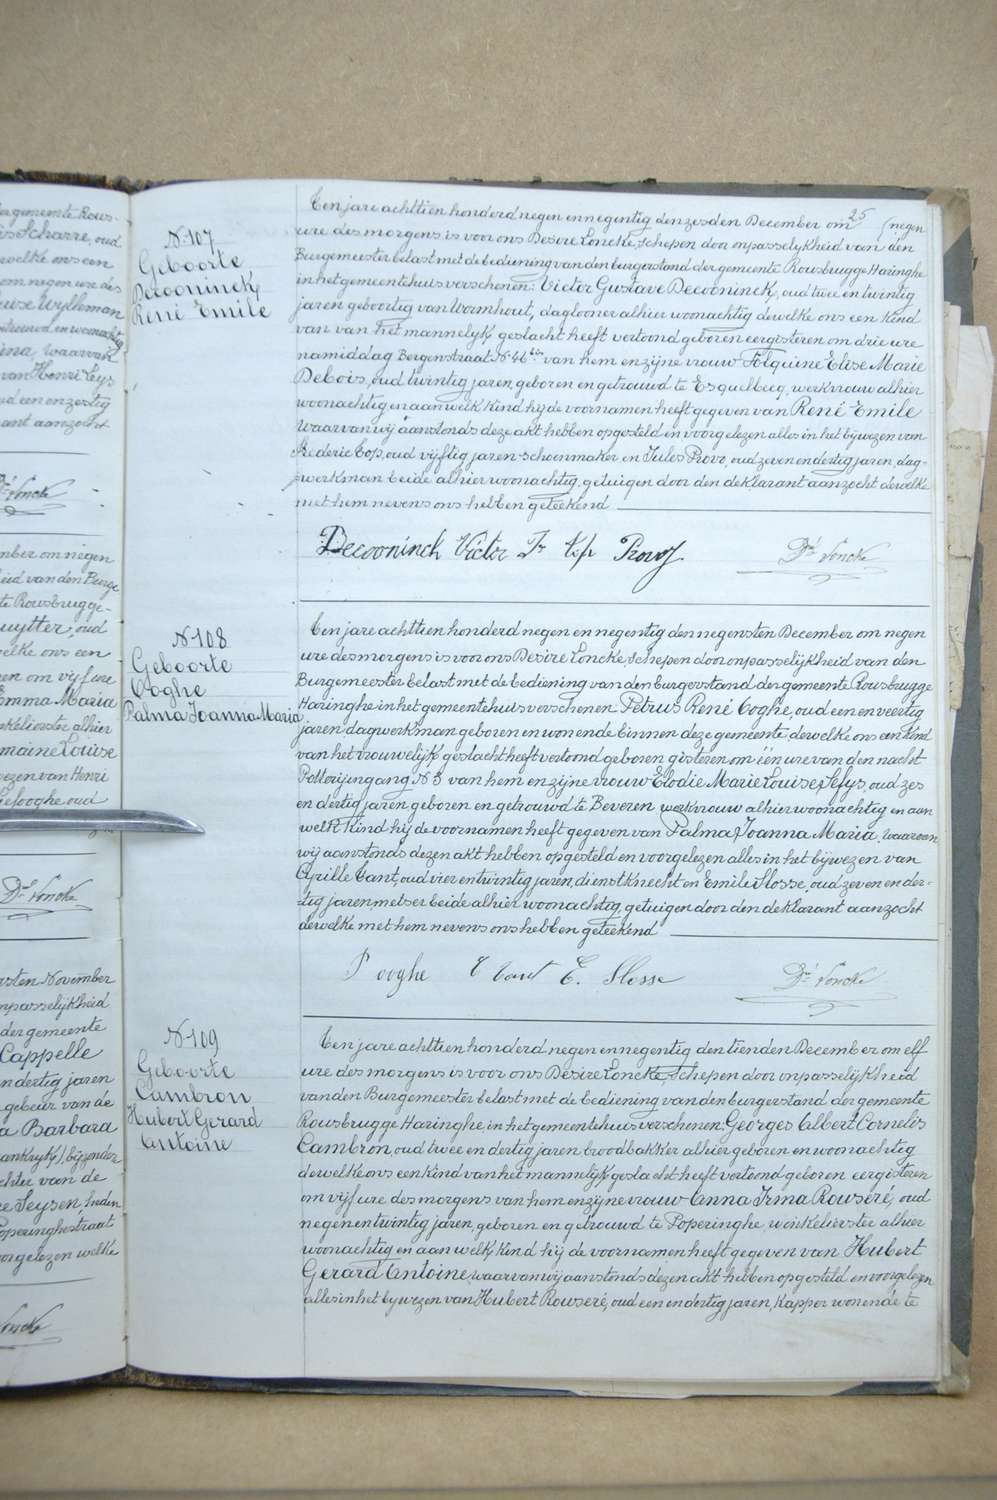 25
N. 107
Geboorte
Decooninck
René Emile
Een jare achttien honderd negen en negentig den zesden December om negen
ure des morgens is voor ons Desiré Loncke, Schepen door onpasselijkheid van den
Burgemeester belast met de bediening van den burgerstand der gemeente Rousbrugge Haringhe
in het gemeentehuis verschenen: Victor Gustave Decooninck, oud twee en twintig
jaren geboortig van Wormhout, daglooner alhier woonachtig dewelke ons een kind
van van het mannelyk geslacht heeft vertoond geboren eergisteren om drie ure
namiddag Bergenstraat N. 46 bis van hem en zijne vrouw Folquine Elise Marie
Debois, oud twintig jaren, geboren en getrouwd te Esquelbecq, werkvrouw alhier
woonachtig en aan welk kind hij de voornamen heeft gegeven van René Emile
Waarvan wij aanstonds deze akt hebben opgesteld en voorgelezen alles in het bijwezen van
Frederic Cop, oud vijftig jaren schoenmaker en Jules Provo, oud zeven en dertig jaren, dag-
werkman beide alhier woonachtig, getuigen door den deklarant aanzocht dewelke
met hem nevens ons hebben geteekend
Decooninck Victor Fr Cop Provo Dré Loncke
N. 108
Geboorte
Cooghe
Palma Joanna Maria
Een jare achttien honderd negen en negentig den negensten December om negen
ure des morgens is voor ons Desiré Loncke, Schepen door onpasselijkheid van den
Burgemeester belast met de bediening van den burgerstand der gemeente Rousbrugge
Haringhe in het gemeentehuis verschenen Petrus René Cooghe, oud een en veertig
jaren dagwerkman geboren en wonende binnen deze gemeente dewelke ons een kind
van het vrouwelijk geslacht heeft vertoond geboren gisteren om één ure van den nacht
Pottorijngang N. 3 van hem en zijne vrouw Elodie Marie Louise Sefys, oud zes
en dertig jaren geboren en getrouwd te Beveren werkvrouw alhier woonachtig en aan
welk kind hij de voornamen heeft gegeven van Palma Joanna Maria, waarvan
wij aanstonds dezen akt hebben opgesteld en voorgelezen alles in het bijwezen van
Cyrille Cant, oud vier en twintig jaren, dienstknecht en Emile Slosse, oud zeven en der-
tig jaren, metser beide alhier woonachtig, getuigen door den deklarant aanzocht
dewelke met hem nevens ons hebben geteekend
P Cooghe C Cant E. Slosse Dré Loncke
N. 109
Geboorte
Cambron
Hubert Gerard
Antoine
Een jare achttien honderd negen en negentig den tienden December om elf
ure des morgens is voor ons Desiré Loncke, Schepen door onpasselijkheid
van den Burgemeester belast met de bediening van den burgerstand der gemeente
Rousbrugge Haringhe, in het gemeentehuis verschenen: Georges Albert Cornelis
Cambron oud twee en dertig jaren broodbakker alhier geboren en woonachtig
dewelke ons een kind van het mannelijk geslacht heeft vertoond geboren eergisteren
om vijf ure des morgens van hem en zijne vrouw Anna Irma Rouseré, oud
negen en twintig jaren, geboren en getrouwd te Poperinghe, winkelierster alhier
woonachtig en aan welk kind hij de voornamen heeft gegeven van Hubert
Gerard Antoine, waarvan wij aanstonds dezen akt hebben opgesteld en voorgelezen
alles in het bijwezen van Hubert Rouseré, oud een en dertig jaren, kapper wonende te